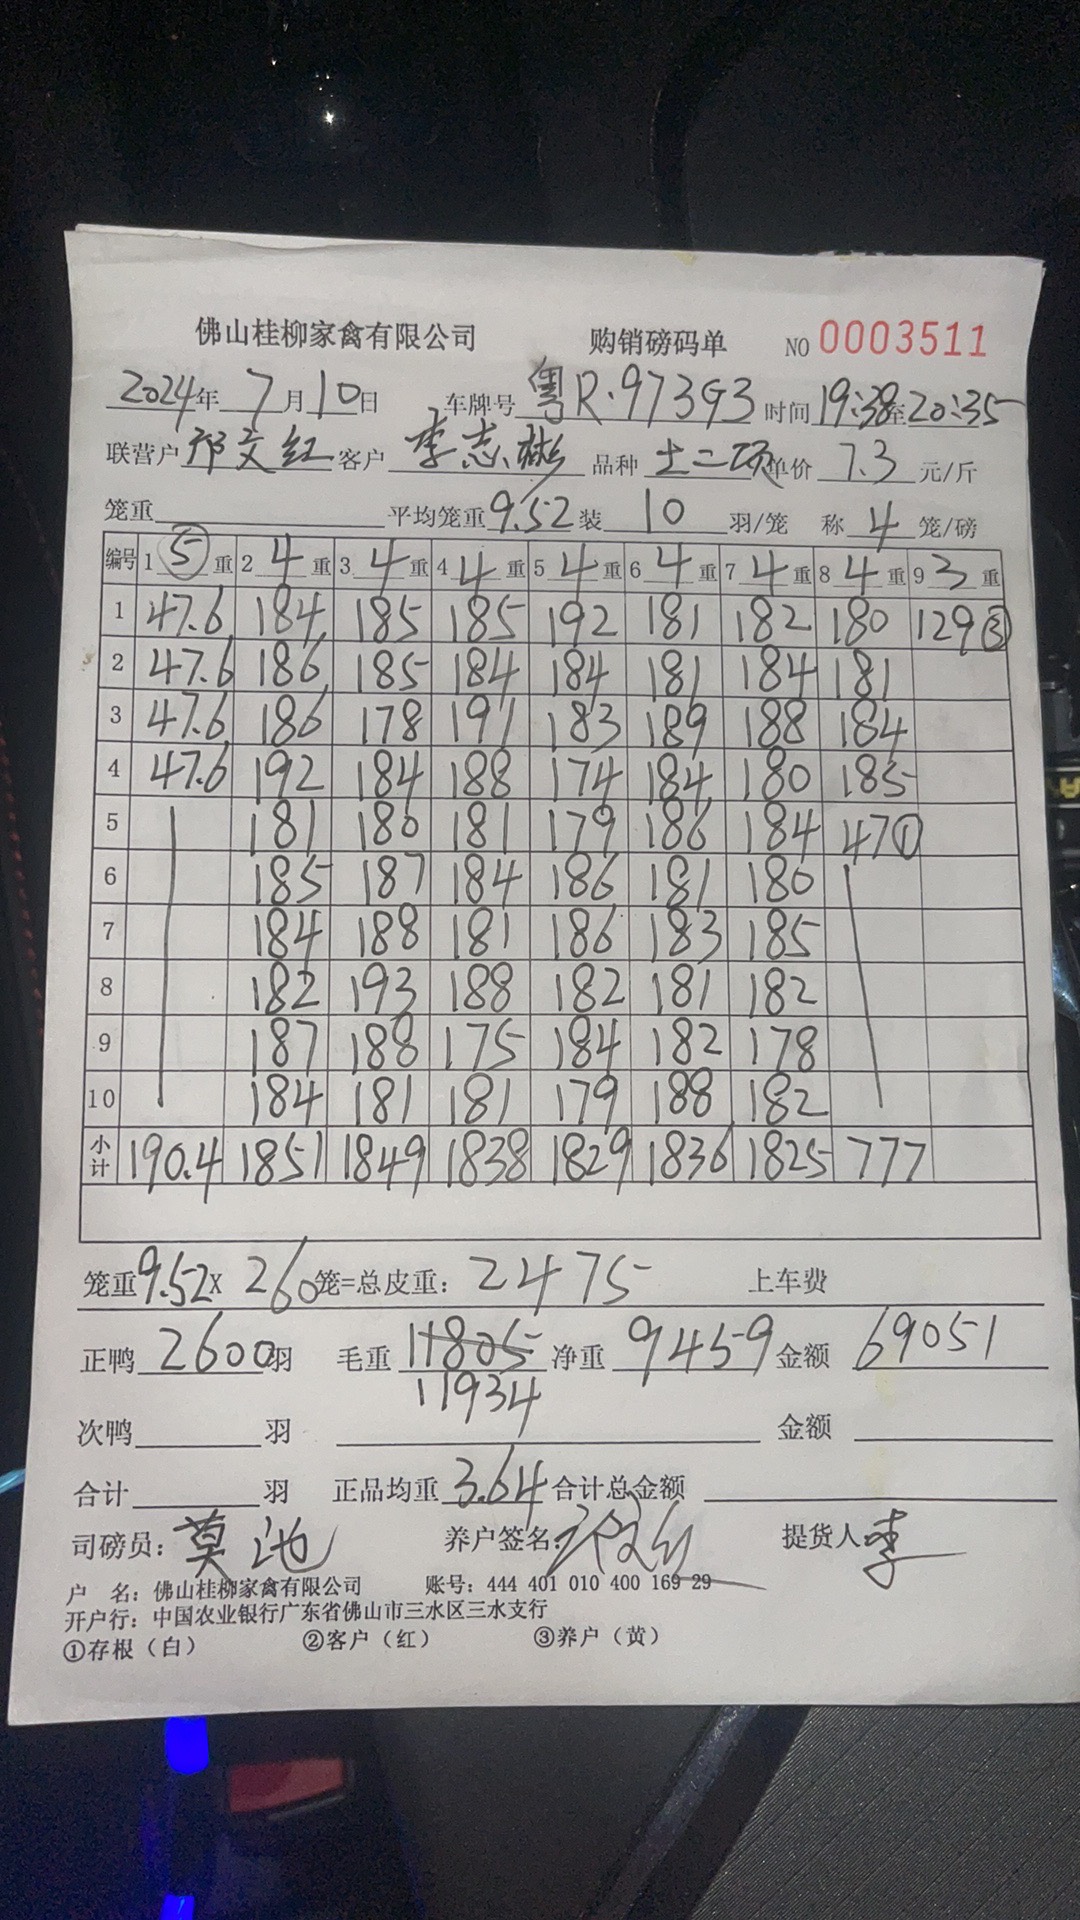 佛山桂柳家禽有限公司 购销磅码单 NO 0003511
2024年 7月10日 车牌号 粤R·973G3 时间 19:38至20:35
联营户 邓文红 客户 李志彬 品种 土二项 单价 7.3 元/斤
笼重 平均笼重 9.52 装 10 羽/笼 称 4 笼/磅
编号 1 ⑤ 重 2 4 重 3 4 重 4 4 重 5 4 重 6 4 重 7 4 重 8 4 重 9 3 重
1 47.6 184 185 185 192 181 182 180 129③
2 47.6 186 185 184 184 181 184 181
3 47.6 186 178 191 183 189 188 184
4 47.6 192 184 188 174 184 180 185
5 181 180 181 179 186 184 47①
6 185 187 184 186 181 180
7 184 188 181 186 183 185
8 182 193 188 182 181 182
9 187 188 175 184 182 178
10 184 181 181 179 188 182
小计 190.4 1851 1849 1838 1829 1836 1825 777
笼重 9.52 X 260 笼=总皮重: 2475 上车费
正鸭 2600 羽 毛重 11805 净重 9459 金额 69051
11934
次鸭 羽 金额
合计 羽 正品均重 3.64 合计总金额
司磅员: 莫池 养户签名: 提货人 李
户 名: 佛山桂柳家禽有限公司 账号: 444 401 010 400 169 29
开户行: 中国农业银行广东省佛山市三水区三水支行
①存根（白） ②客户（红） ③养户（黄）